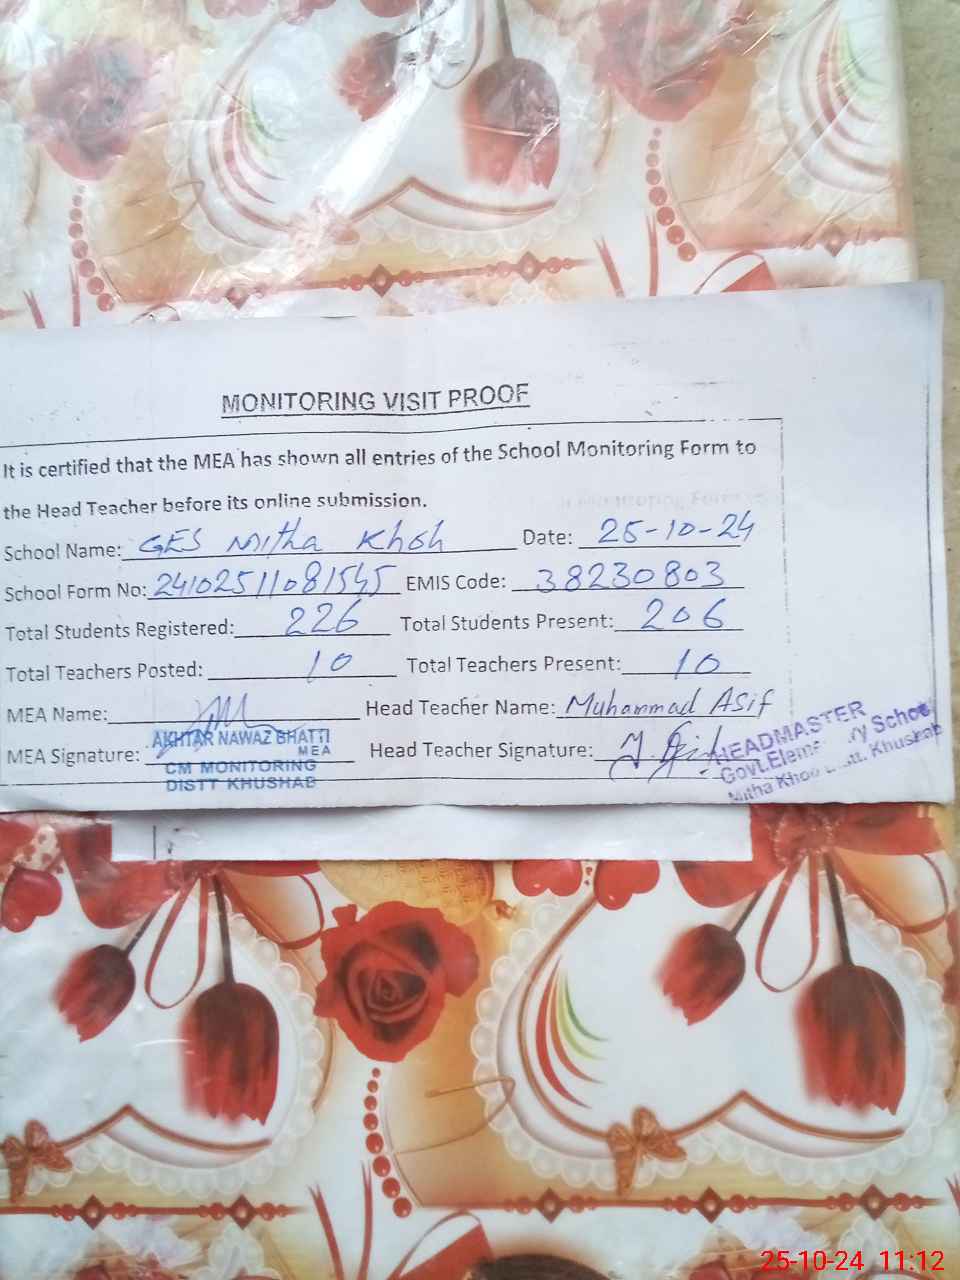 MONITORING VISIT PROOF
It is certified that the MEA has shown all entries of the School Monitoring Form to
the Head Teacher before its online submission.
School Name: GES Mitha Khoh Date: 25-10-24
School Form No: 24102511081545 EMIS Code: 38230803
Total Students Registered: 226 Total Students Present: 206
Total Teachers Posted: 10 Total Teachers Present: 10
MEA Name: Head Teacher Name: Muhammad Asif
MEA Signature: Head Teacher Signature:
AKHTAR NAWAZ BHATTI
MEA
CM MONITORING
DISTT KHUSHAB
HEADMASTER
Govt. School
Mitha Khushab
25-10-24 11:12